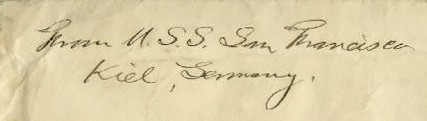 From U.S.S. San Francisco
Kiel, Germany.